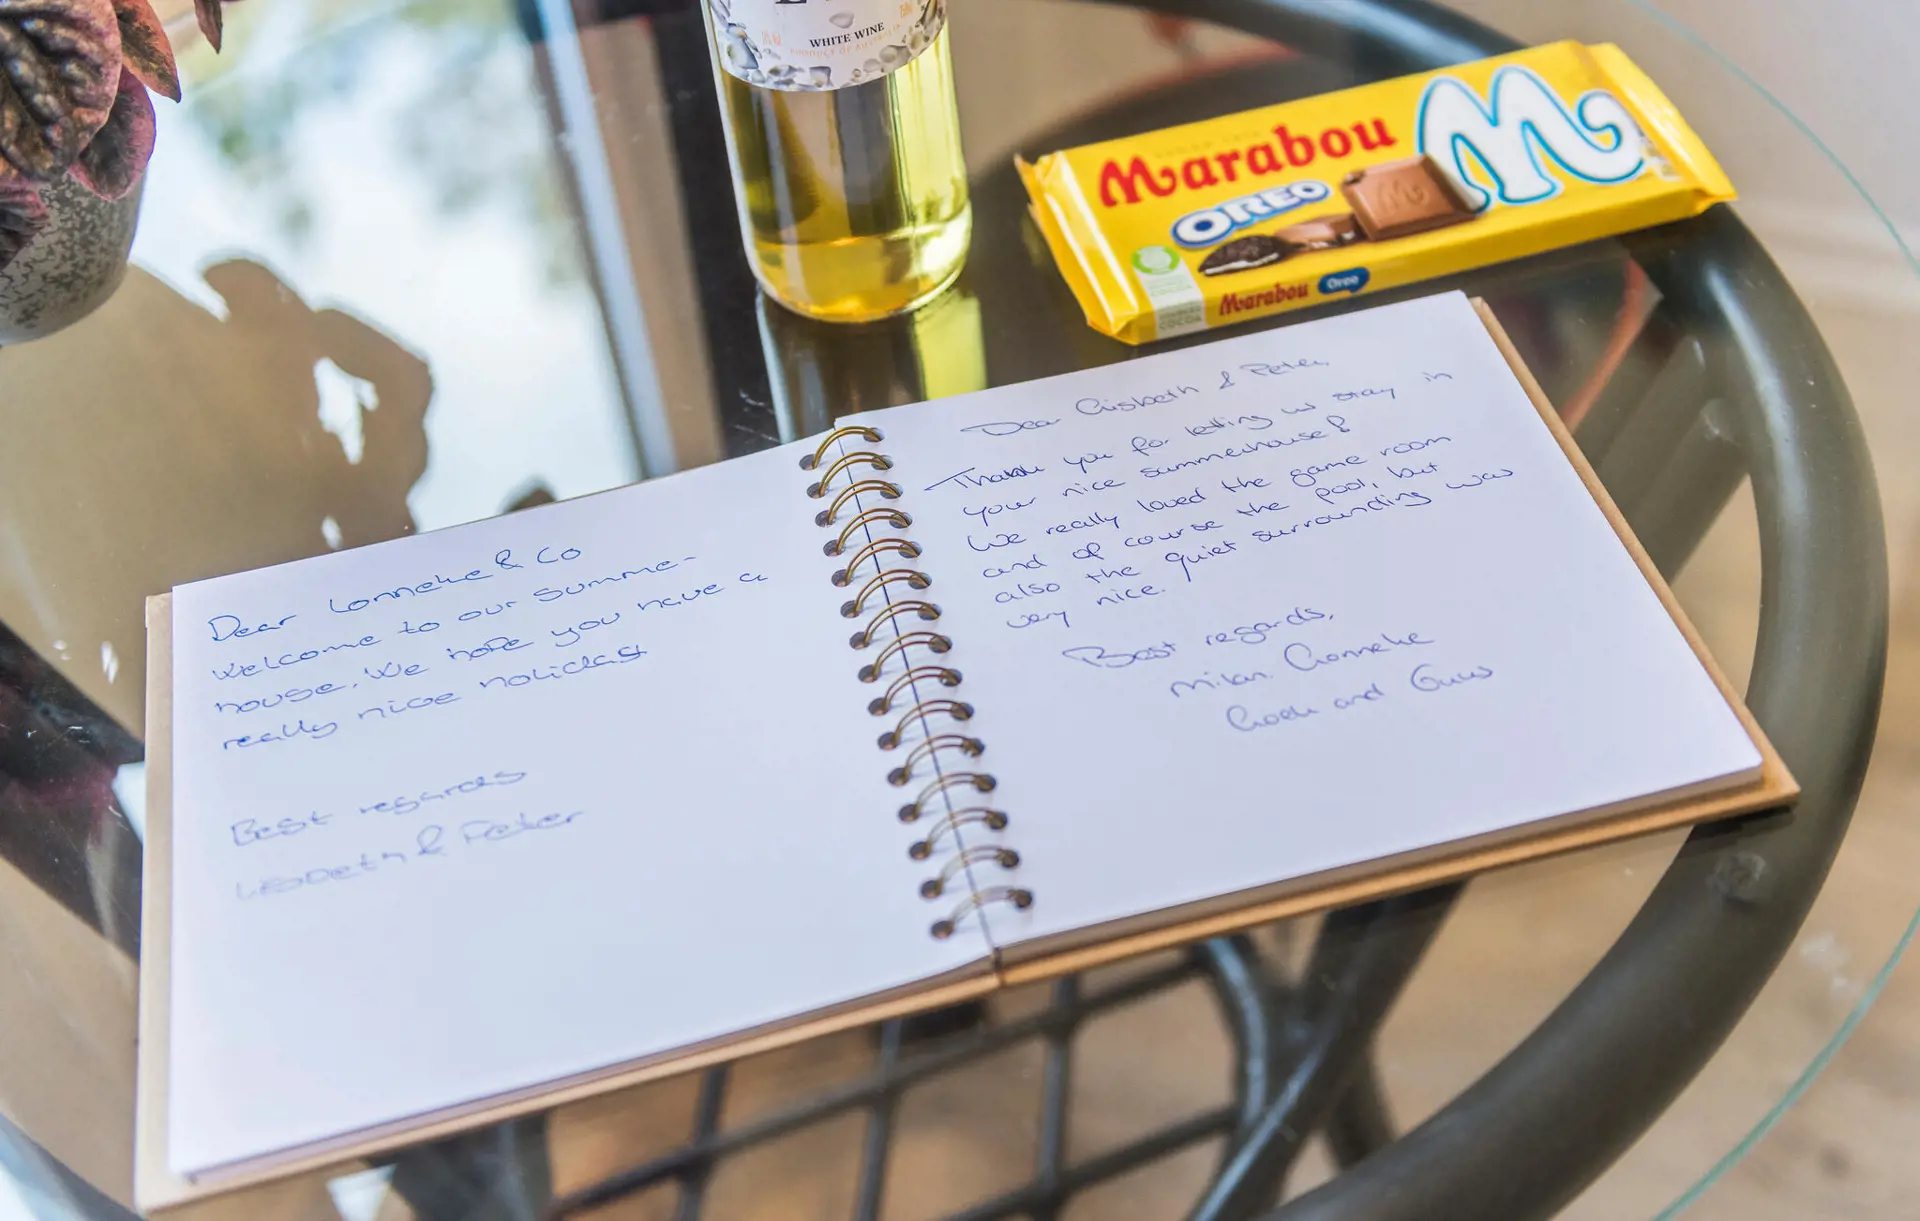 WHITE WINE
PRODUCT OF AUSTRALIA
Marabou
OREO
Marabou Oreo
COCOA
Dear Lonneke & Co
Welcome to our summe-
house. We hope you have a
really nice holiday
Best regards
Lisbeth & Peter
Dear Lisbeth & Peter,
Thank you for letting us stay in
your nice summerhouse!
We really loved the game room
and of course the pool, but
also the quiet surrounding was
very nice.
Best regards,
Milan. Lonneke
and Guus